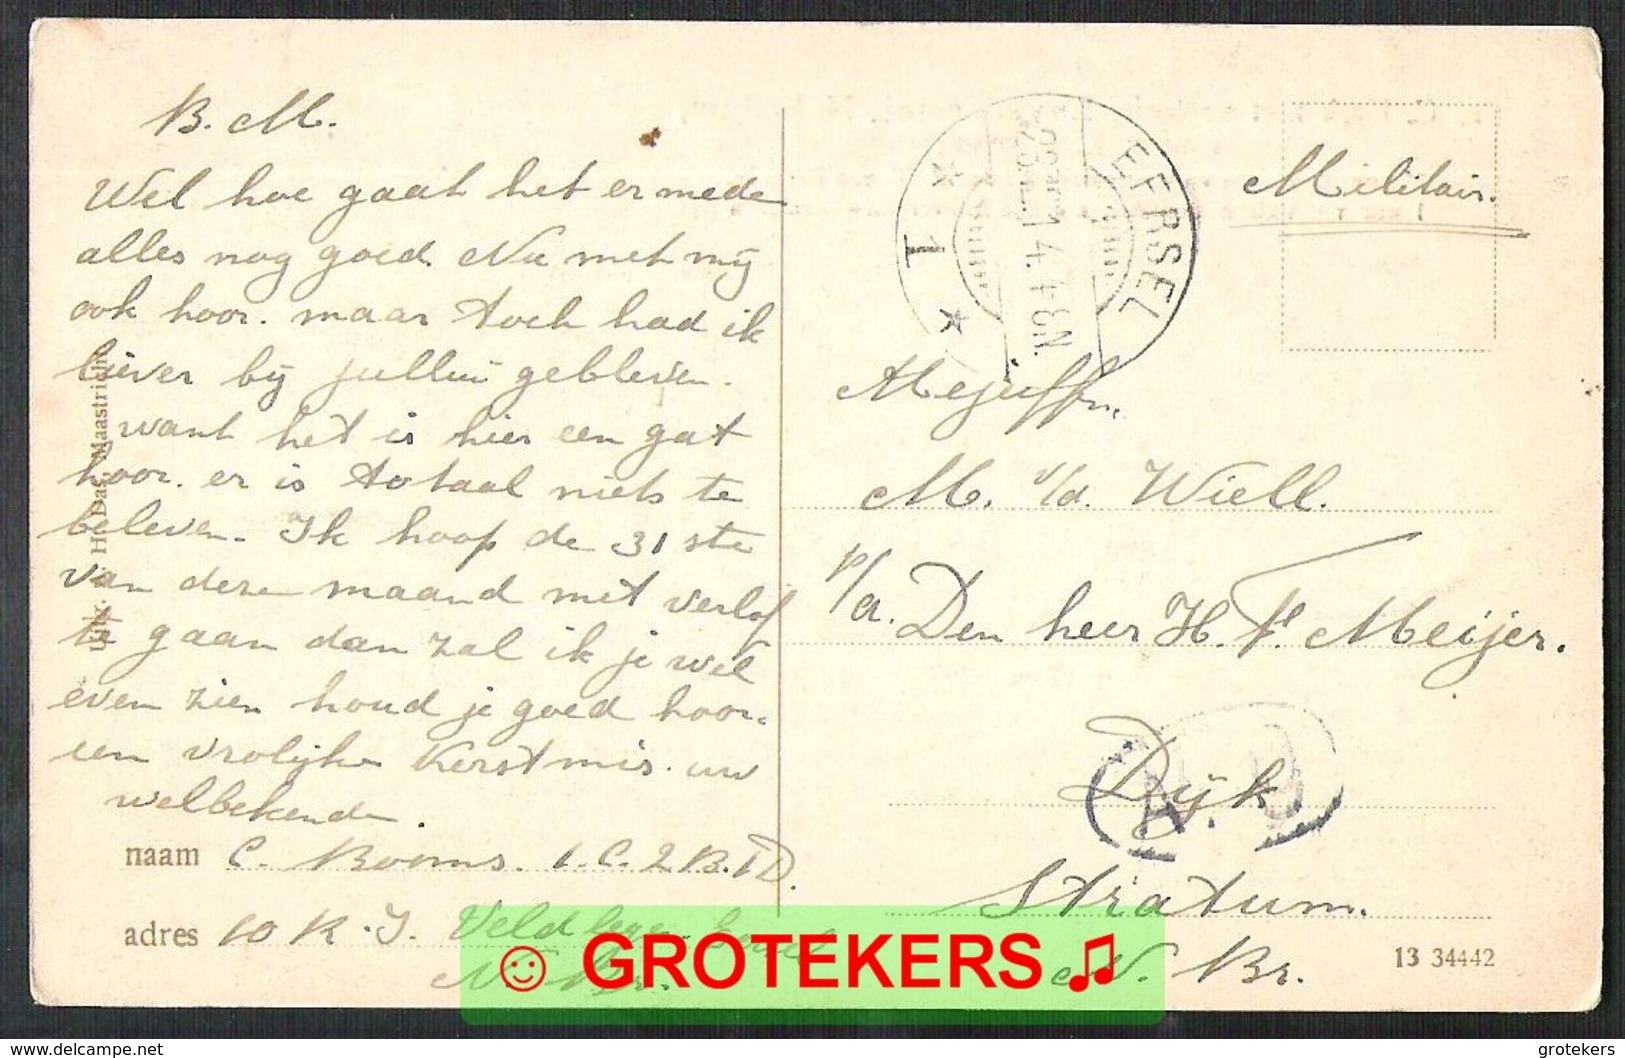 B. M.
Wel hoe gaat het er mede
alles nog goed. Nu met mij
ook hoor. maar toch had ik
liever bij jullui gebleven.
want het is hier een gat
hoor. er is totaal niets te
beleven. Ik hoop de 31 ste
van deze maand met verlof
te gaan dan zal ik je wel
even zien houd je goed hoor.
een vrolijke Kerstmis. uw
welbekende.
naam C. Booms. 1. C. 2 B. D.
adres 10 R. I. Veldleger Eersel
N. Br.
Uitg. H. Das, Maastricht
EERSEL
1
23.12.14. 7-8N.
Militair.
Mejuffr.
M. v/d. Wiell.
p/a. Den heer H. F. Meijer.
Dijk.
Stratum.
N. Br.
13 34442
☺ GROTEKERS ♫
www.delcampe.net
grotekers